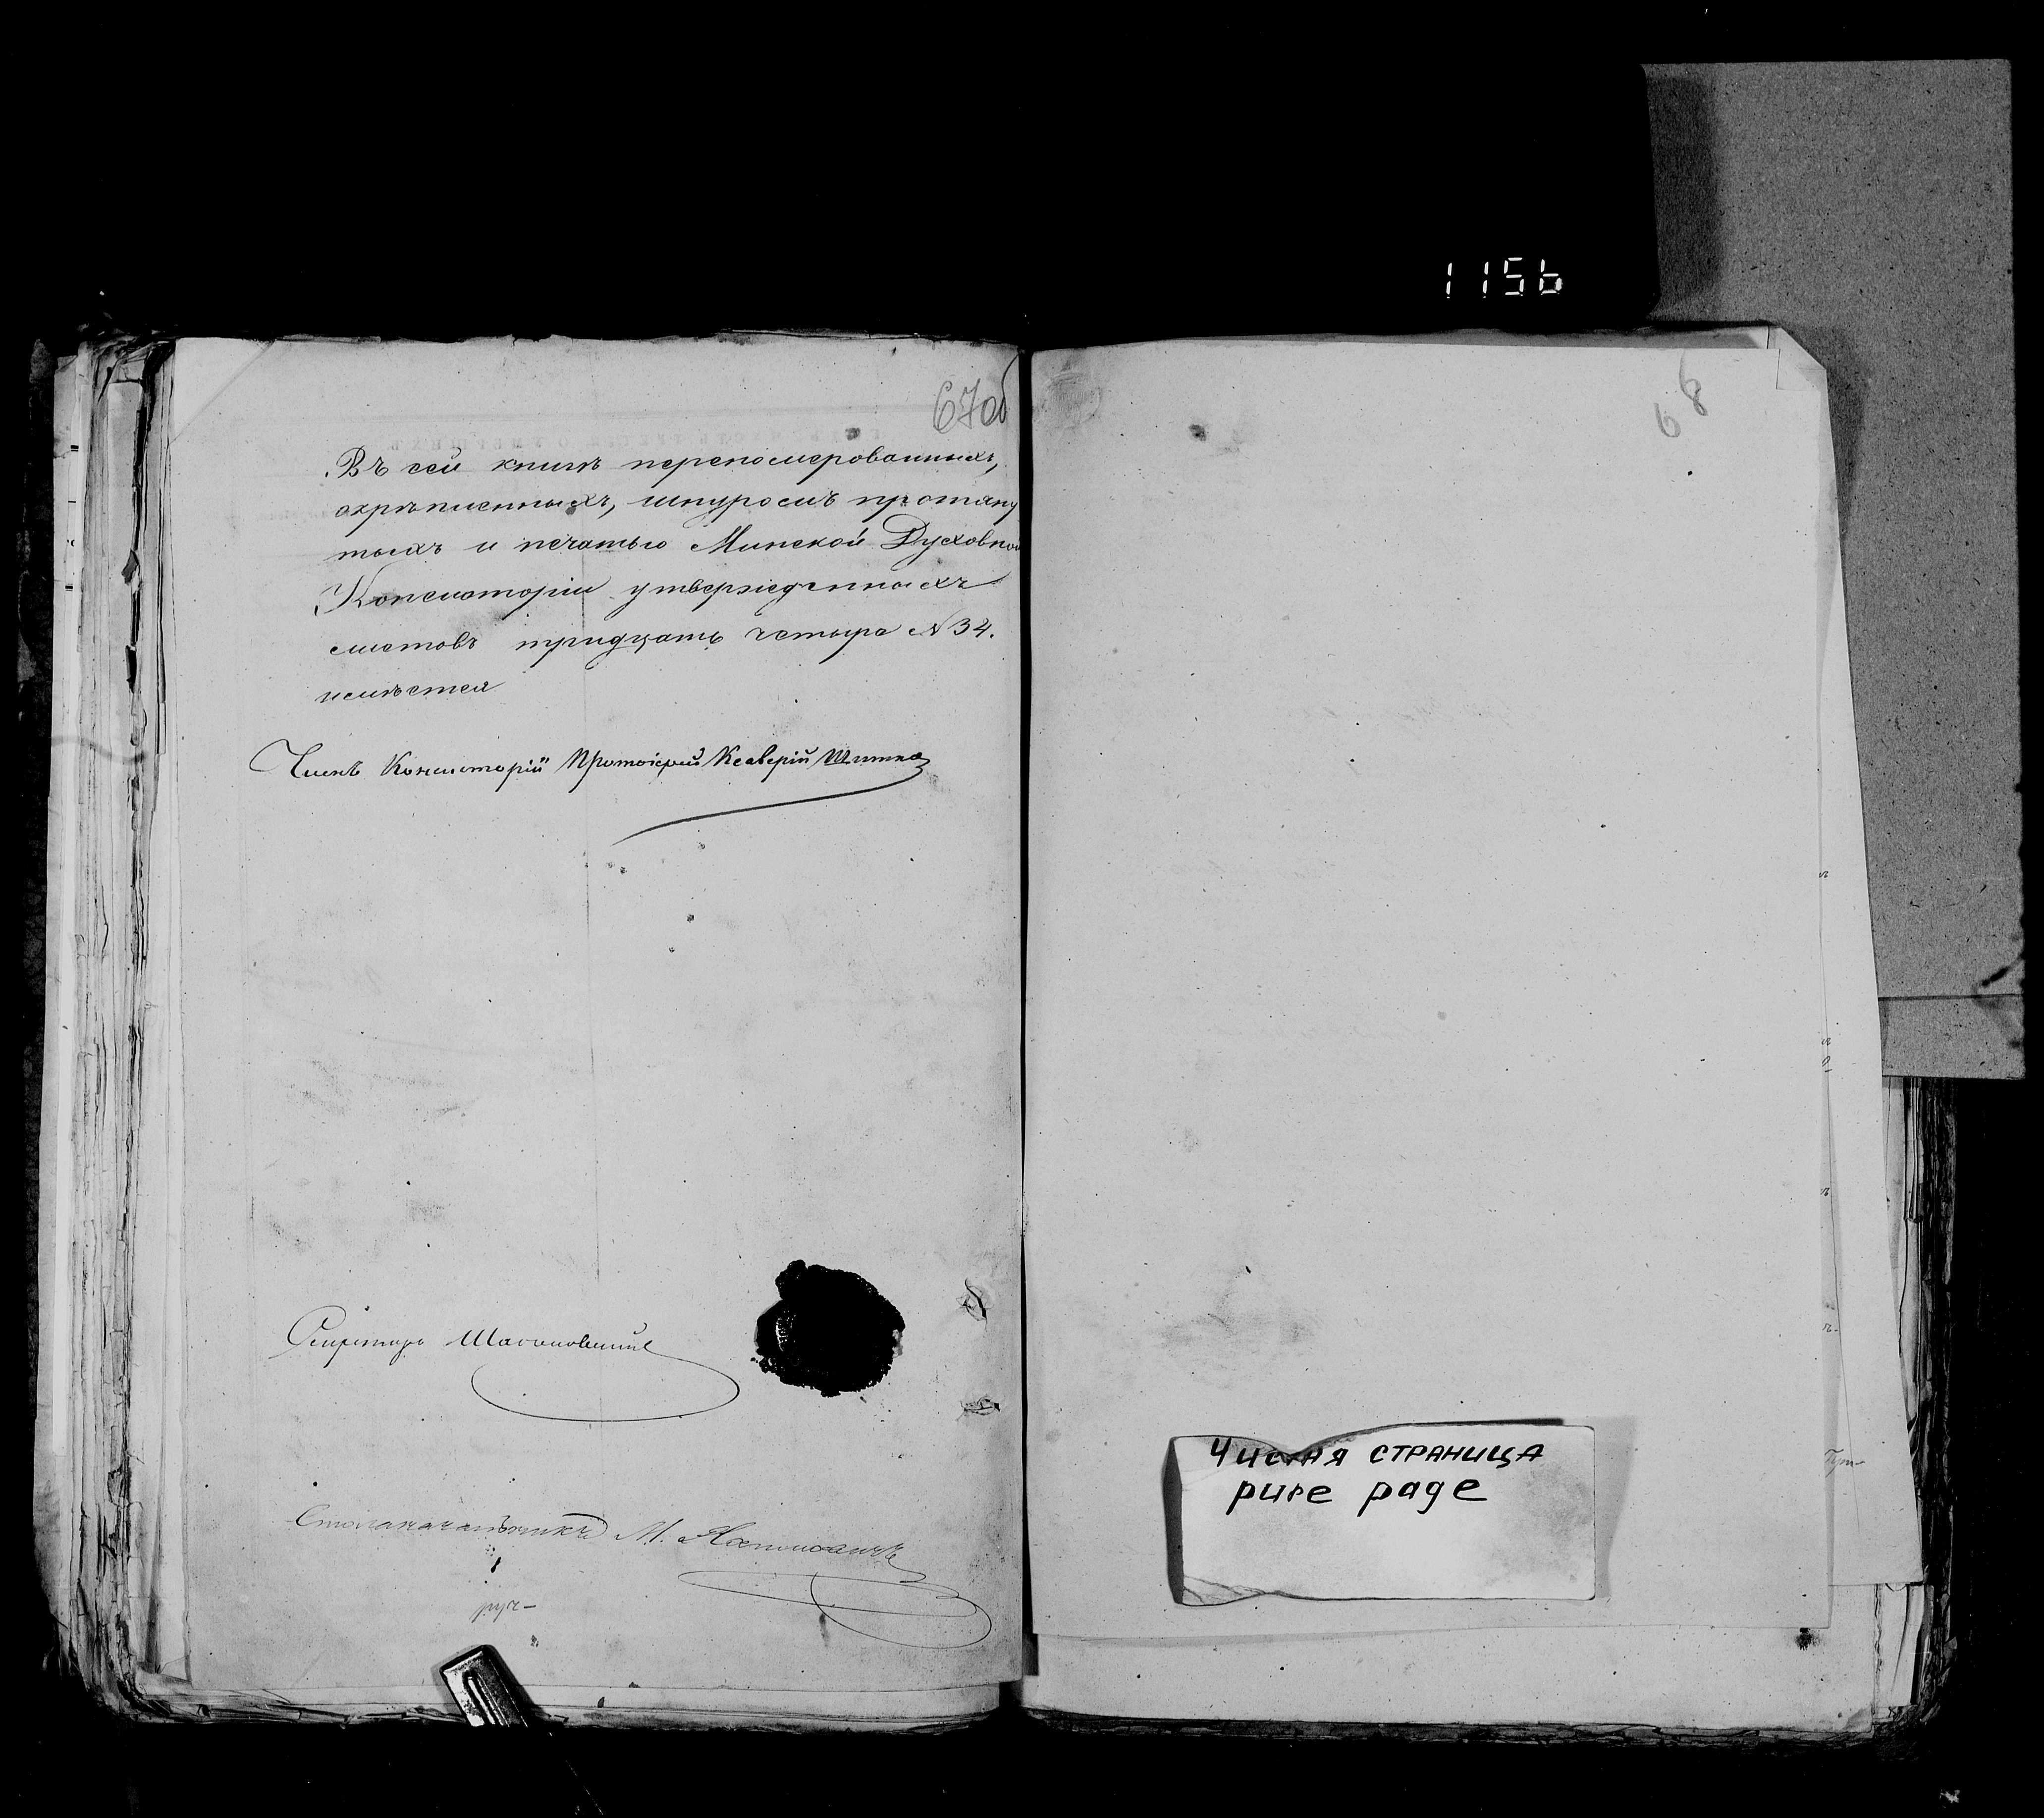 1156
67об
Въ сей книгѣ перепомерованныхъ,
скрѣпленныхъ, шнуромъ протяну
тыхъ и печатью Минской Духовной
Консисторіи утвержденныхъ
листовъ тридцать четыре №34.
имѣется
Членъ Консисторіи Протоіерей Ксаверій
Секретарь
Столоначальникъ М.
68
Чистая страница
pure page